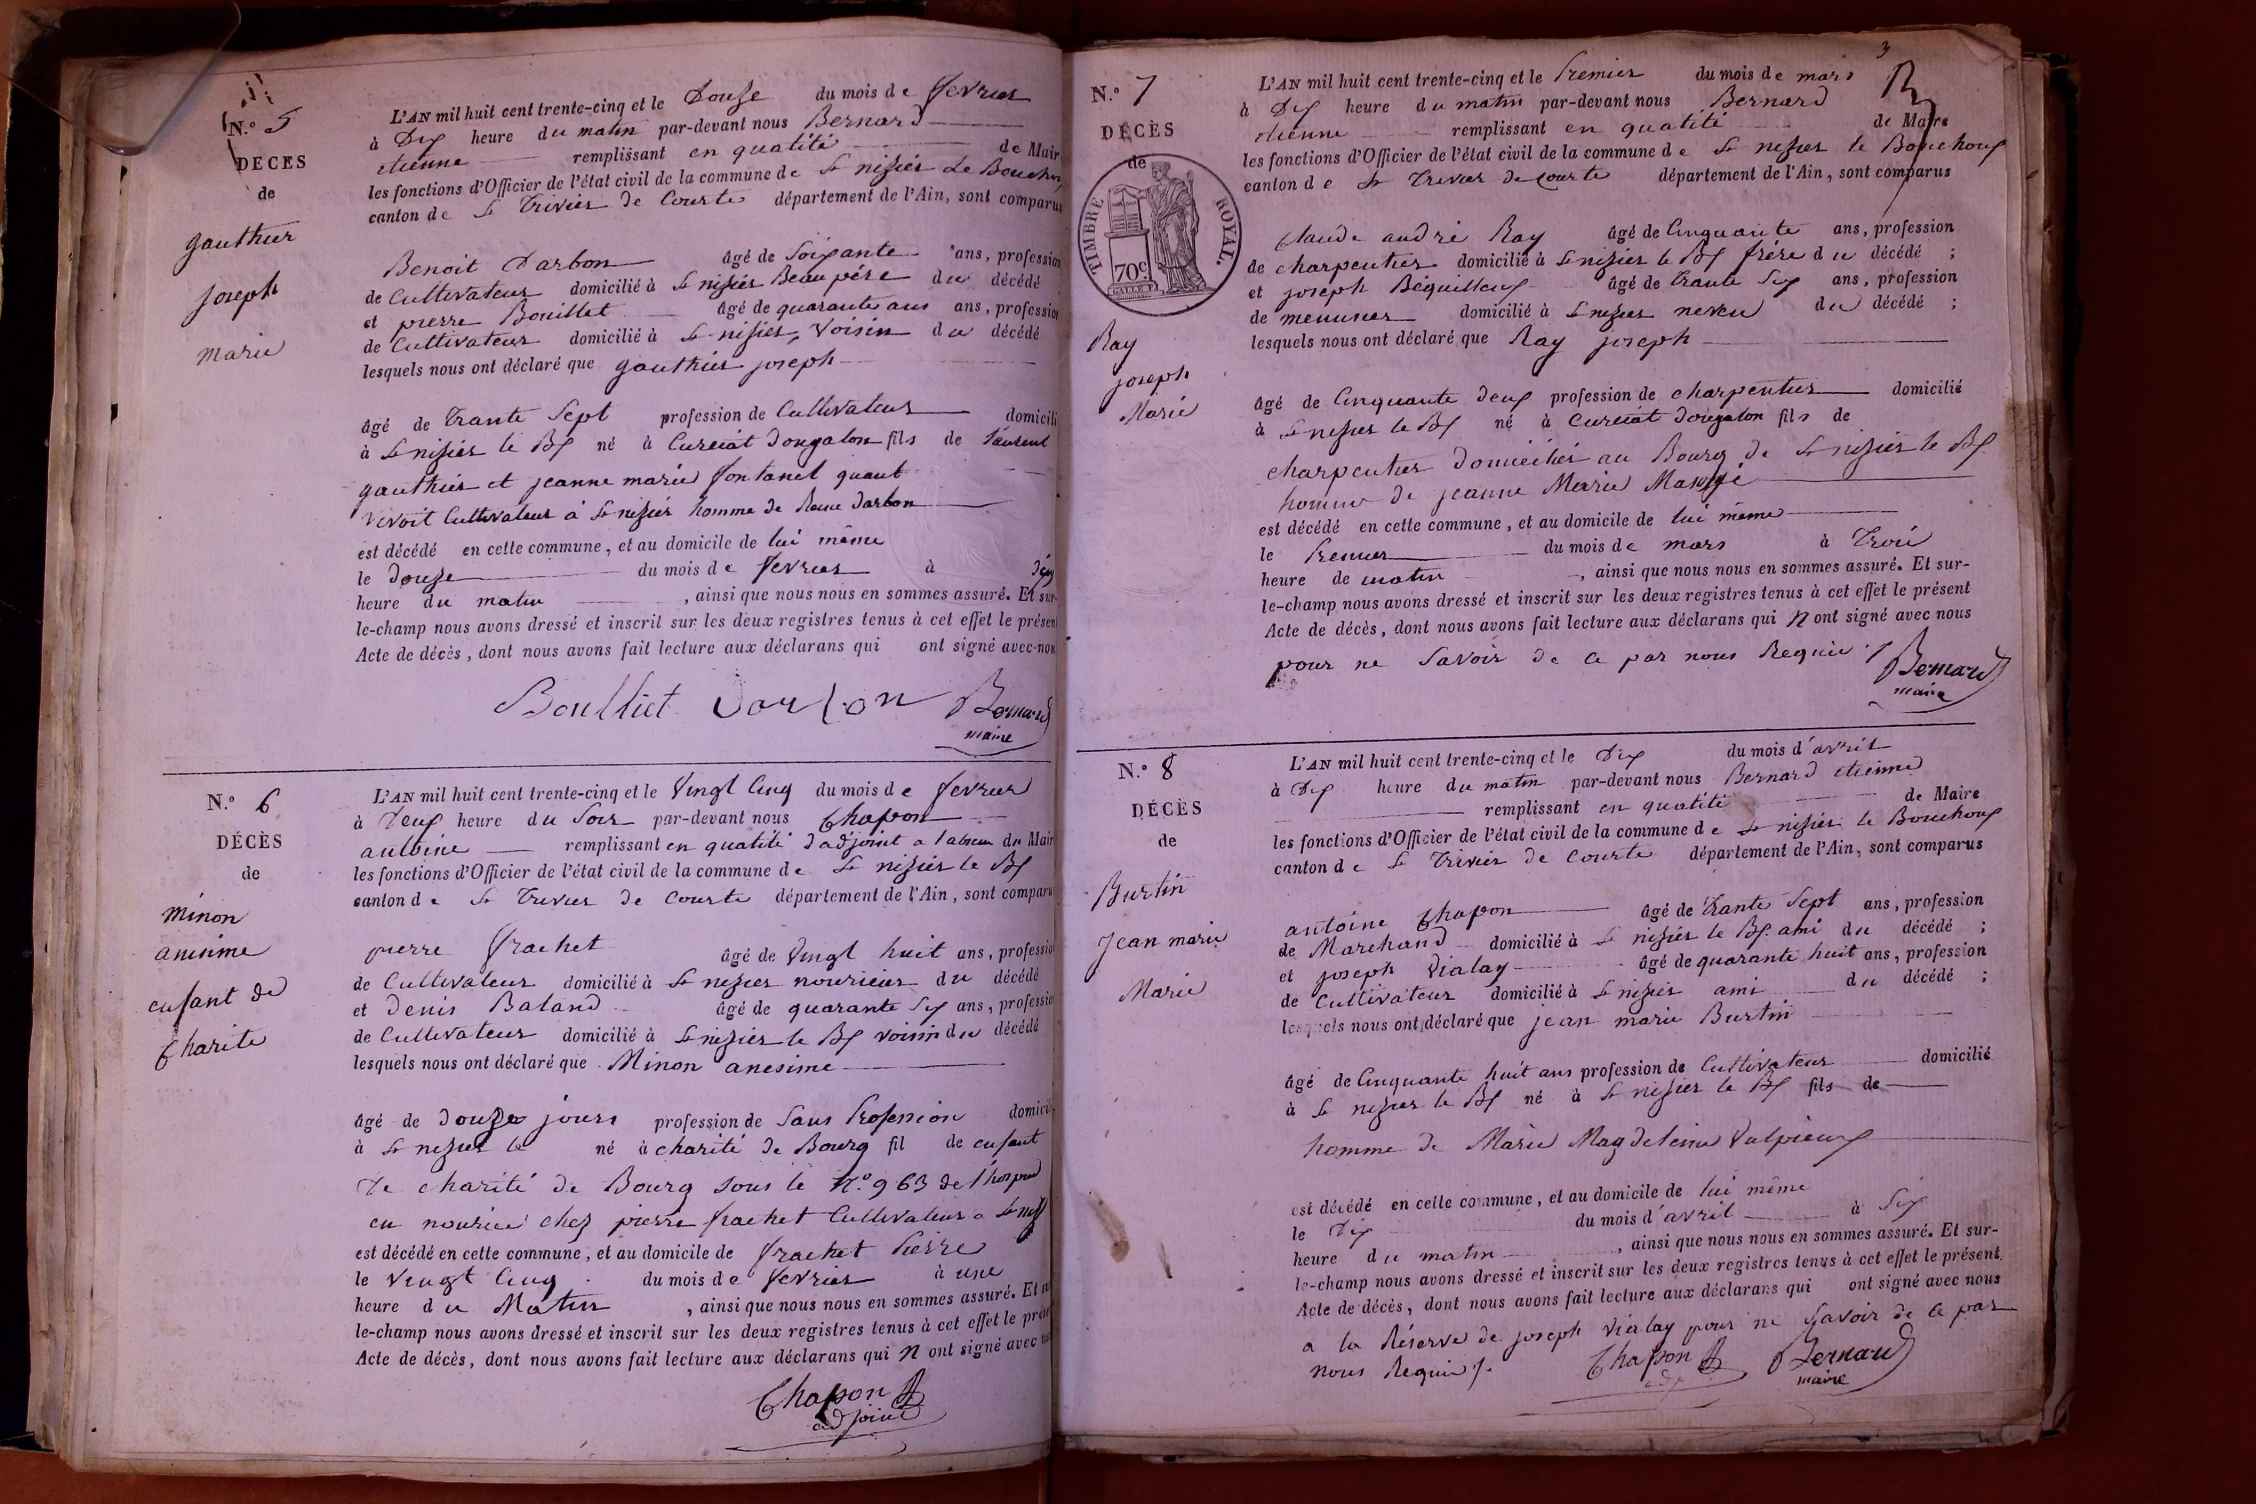 N.° 5
DECES
de
gauthier
joseph
marie
L'AN mil huit cent trente-cinq et le Douse du mois de fevrier
à Dix heure du matin par-devant nous Bernard
etienne remplissant en qualité de Mair
les fonctions d'Officier de l'état civil de la commune de St nisier Le Bouchoux
canton de St Trivier de Courte département de l'Ain, sont comparus
Benoit Darbon âgé de Soixante ans, profession
de Cultivateur domicilié à St nisier Beau père du décédé
et pierre Bouillet âgé de quarante ans ans, profession
de Cultivateur domicilié à St nisier, Voisin du décédé
lesquels nous ont déclaré que gauthier joseph
âgé de trante Sept profession de Cultivateur domicili
à St nisier le Bx né à Curciat dongalon fils de Laurent
gauthier et jeanne marie fontanel quant
vivoit Cultivateur à St nisier homme de Reine Darbon
est décédé en cette commune, et au domicile de lui même
le douze du mois de fevrier à dix
heure du matin , ainsi que nous nous en sommes assuré. Et sur-
le-champ nous avons dressé et inscrit sur les deux registres tenus à cet effet le présent
Acte de décès, dont nous avons fait lecture aux déclarans qui ont signé avec nou
Boulliet Darbon Bernard
maire
N.° 6
DÉCÈS
de
minon
anisime
enfant de
Charite
L'AN mil huit cent trente-cinq et le Vingt Cinq du mois de fevrier
à Deux heure du Soir par-devant nous Chapon
antoine remplissant en qualité d'adjoint a l'absence du Mair
les fonctions d'Officier de l'état civil de la commune de St nisier le Bx
canton de St Trivier de Courte département de l'Ain, sont comparu
pierre frachet âgé de Vingt huit ans, professio
de Cultivateur domicilié à St nisier nouricier du décédé
et Denis Baland âgé de quarante Six ans, professio
de Cultivateur domicilié à St nisier le Bx voisin du décédé
lesquels nous ont déclaré que Minon anesime
âgé de douze jours profession de Sans Profession domicili
à St nisier le né à charité de Bourg fil de enfant
de charité de Bourg sous le n.° 963 de l'hospice
en nourice chez pierre frachet Cultivateur a St nisi
est décédé en cette commune, et au domicile de frachet Pierre
le Vingt Cinq du mois de fevrier à une
heure du Matin , ainsi que nous nous en sommes assuré. Et su
le-champ nous avons dressé et inscrit sur les deux registres tenus à cet effet le prése
Acte de décès, dont nous avons fait lecture aux déclarans qui n ont signé avec
Chapon
adjoint
3
N.° 7
DÉCÈS
de
TIMBRE ROYAL.
70c
Ray
joseph
Marie
L'AN mil huit cent trente-cinq et le Premier du mois de mars
à Dix heure du matin par-devant nous Bernard
etienne remplissant en qualité de Maire
les fonctions d'Officier de l'état civil de la commune de St nisier le Bouchoux
canton de St Trivier de Courte département de l'Ain, sont comparus
Claude andré Ray âgé de Cinquante ans, profession
de charpentier domicilié à St nisier le Bx frére du décédé ;
et joseph Béquilleux âgé de trante Six ans, profession
de menusier domicilié à St nisier neveu du décédé ;
lesquels nous ont déclaré que Ray joseph
âgé de Cinquante deux profession de charpentier domicilié
à St nisier le Bx né à Curciat dongalon fils de
charpentier domicilier au Bourg de St nisier le Bx
homme de jeanne Marie
est décédé en cette commune, et au domicile de lui même
le Premier du mois de mars à Troi
heure de matin , ainsi que nous nous en sommes assuré. Et sur-
le-champ nous avons dressé et inscrit sur les deux registres tenus à cet effet le présent
Acte de décès, dont nous avons fait lecture aux déclarans qui n ont signé avec nous
pour ne Savoir de ce par nous Requis ./ Bernard
maire
N.° 8
DÉCÈS
de
Burtin
Jean marie
Marie
L'AN mil huit cent trente-cinq et le Dix du mois d'avril
à Dix heure du matin par-devant nous Bernard etienne
remplissant en qualité de Maire
les fonctions d'Officier de l'état civil de la commune de St nisier le Bouchoux
canton de St Trivier de Courte département de l'Ain, sont comparus
antoine Chapon âgé de trante Sept ans, profession
de Marchand domicilié à St nisier le Bx ami du décédé ;
et joseph Vialay âgé de quarante huit ans, profession
de Cultivateur domicilié à St nisier ami du décédé ;
lesquels nous ont déclaré que jean marie Burtin
âgé de Cinquante huit ans profession de Cultivateur domicilié
à St nisier le Bx né à St nisier le Bx fils de
homme de Marie Magdeleine Vulpieux
est décédé en cette commune, et au domicile de lui même
le Dix du mois d'avril à Six
heure du matin , ainsi que nous nous en sommes assuré. Et sur-
le-champ nous avons dressé et inscrit sur les deux registres tenus à cet effet le présent
Acte de décès, dont nous avons fait lecture aux déclarans qui ont signé avec nous
a la Réserve de joseph Vialay pour ne Savoir de ce par
nous Requis ./. Chapon Bernard
adj maire